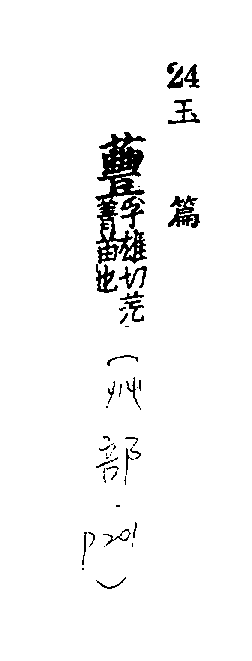 24玉篇
蘴孚雄切芜
菁苗也
(艸部.P201)